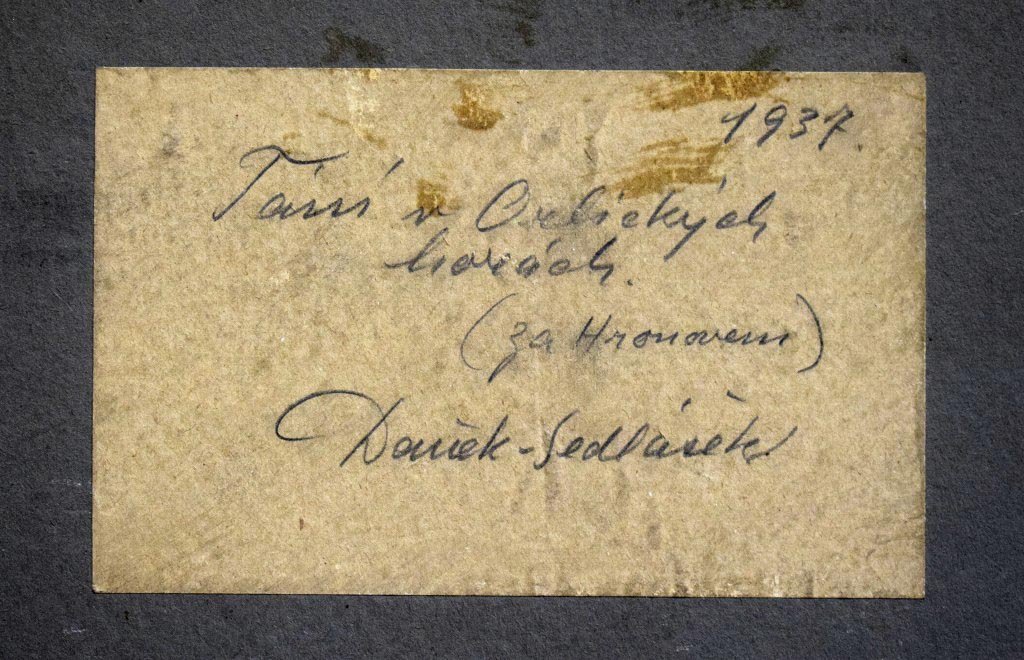 1937.
Tání v Orlických
horách.
(za Hronovem)
Daněk-Sedláček